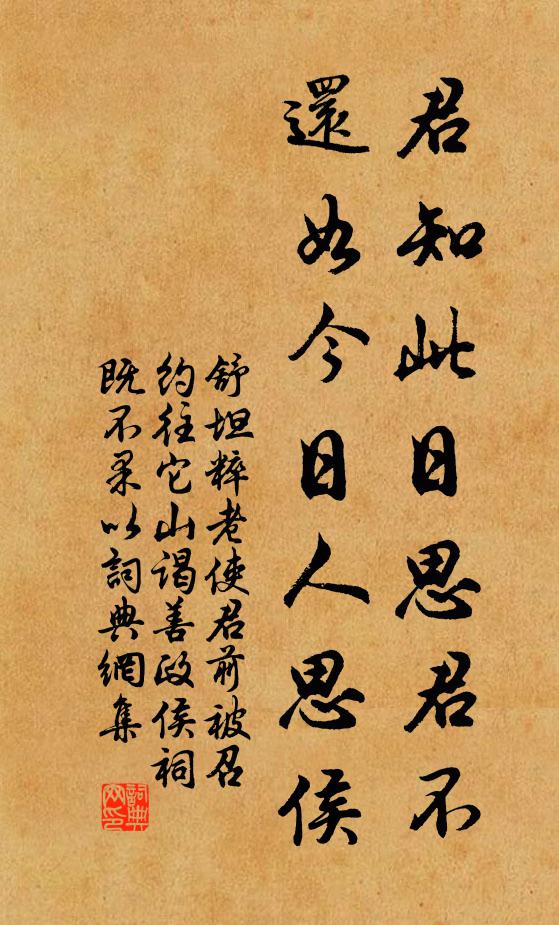 君知此日思君不
還如今日人思侯
舒坦粹老使君前被召
約往它山謁善政侯祠
既不果以詞典網集
詞典網印